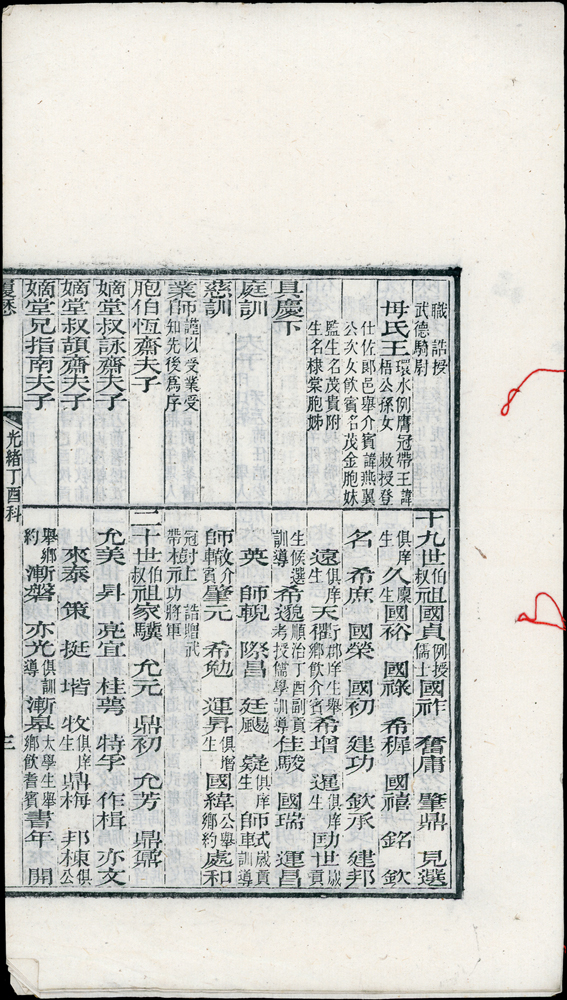 職 誥授
武德騎尉
毋氏王環水例膺冠帶王諱
梧公孫女 敕授登
仕佐郎邑舉介賓諱燕翼
公次女飲賓名茂金胞妹
監生名茂貴附
生名棣棠胞姊
具慶下
庭訓
慈訓
業師謹以受業受
知先後爲序
胞伯恆齋夫子
嫡堂叔詠齋夫子
嫡堂叔頡齋夫子
嫡堂兄指南夫子
履歷
光緒丁酉科
三
十九世伯叔祖國貞例授儒士國祚 奮庸 肇鼎 見選
俱庠生久廩生國裕 國祿 希穉 國禧 銘 欽
名 希庶 國榮 國初 建功 欽承 建邦
遠俱庠生天衢郡庠生舉鄉飲介賓希增 暹俱庠生勛世歲貢
生候選訓導希邈順治丁酉副貢考授儒學訓導佳駿 國瑞 運昌
英 師軏 際昌 廷颺 嶷俱庠生師式歲貢師車訓導
師敬介賓肇元 希勉 運昇俱增生國緯公舉鄉約處和
冠帶封上 誥贈武功將軍
二十世伯叔祖家驥 允元 鼎初 允芳 鼎鼐
允美 昇 亮宜 桂萼 特孚 作楫 亦文
來泰 策 挺 堦 牧俱庠生鼎梅 邦棟俱公
舉鄉約漸磐 亦光俱訓導漸皋太學生舉鄉飲耆賓書年 開